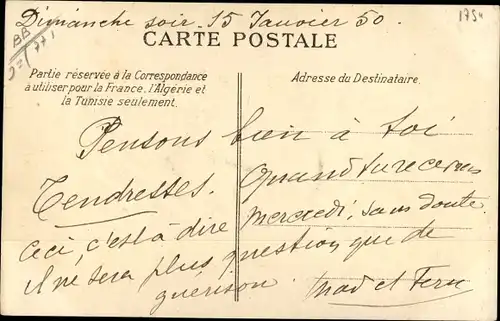 Dimanche soir 15 Janvier 50.
BB
CARTE POSTALE
Partie réservée à la Correspondance
à utiliser pour la France, l'Algérie et
la Tunisie seulement.
Adresse du Destinataire.
Pensons bien à toi
Tendresses.
Quand tu recevras
ceci, c'est à dire mercredi, sans doute
il ne sera plus question que de
guérison.
Mad et Fern